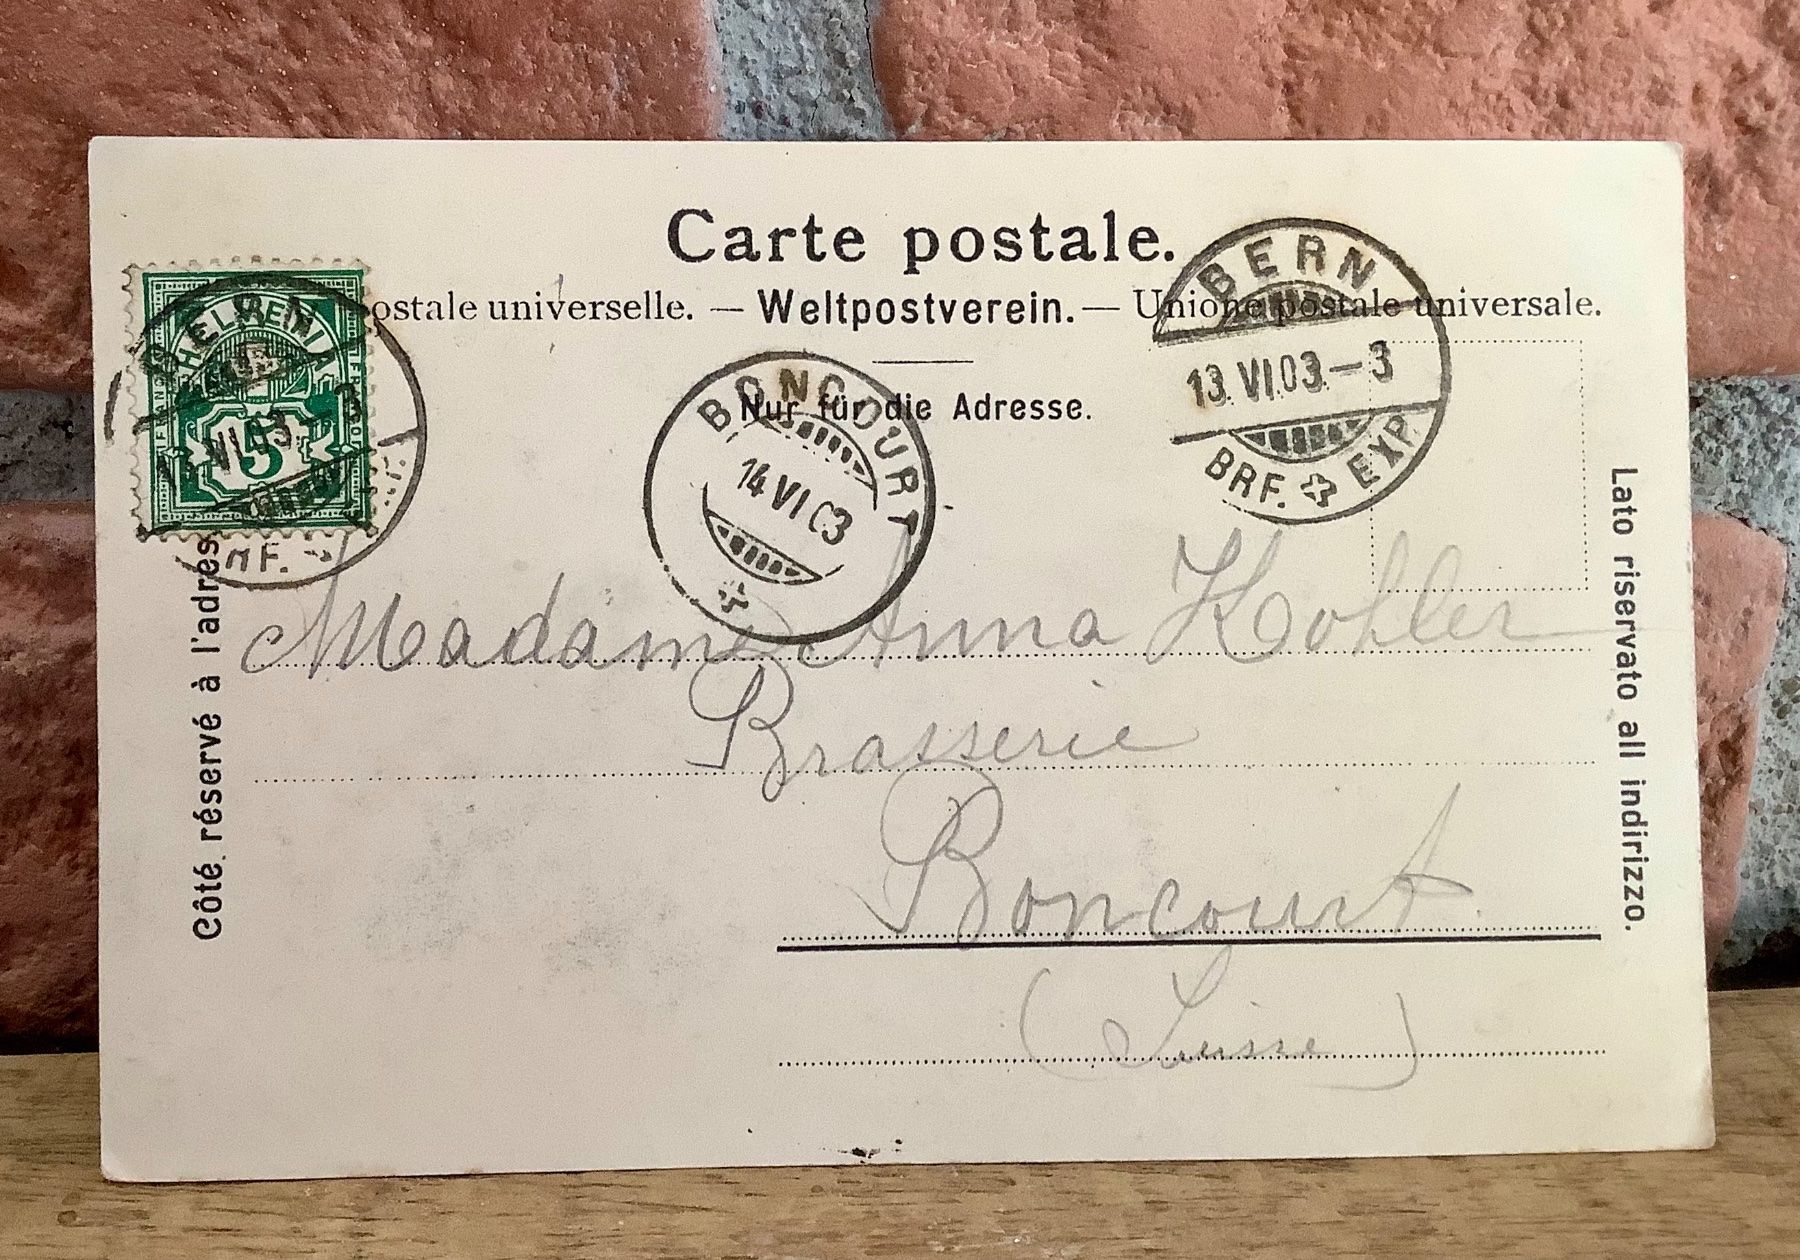 Carte postale.
ostale universelle. — Weltpostverein. — Unione postale universale.
Nur für die Adresse.
HELVETIA
5
BERN
13.VI.03.-3
BRF.
BONCOURT
14 VI 03
BERN
13.VI.03.-3
BRF. EXP.
Côté réservé à l'adres
Lato riservato all indirizzo.
Madame Anna Kohler
Brasserie
Boncourt
(Suisse)